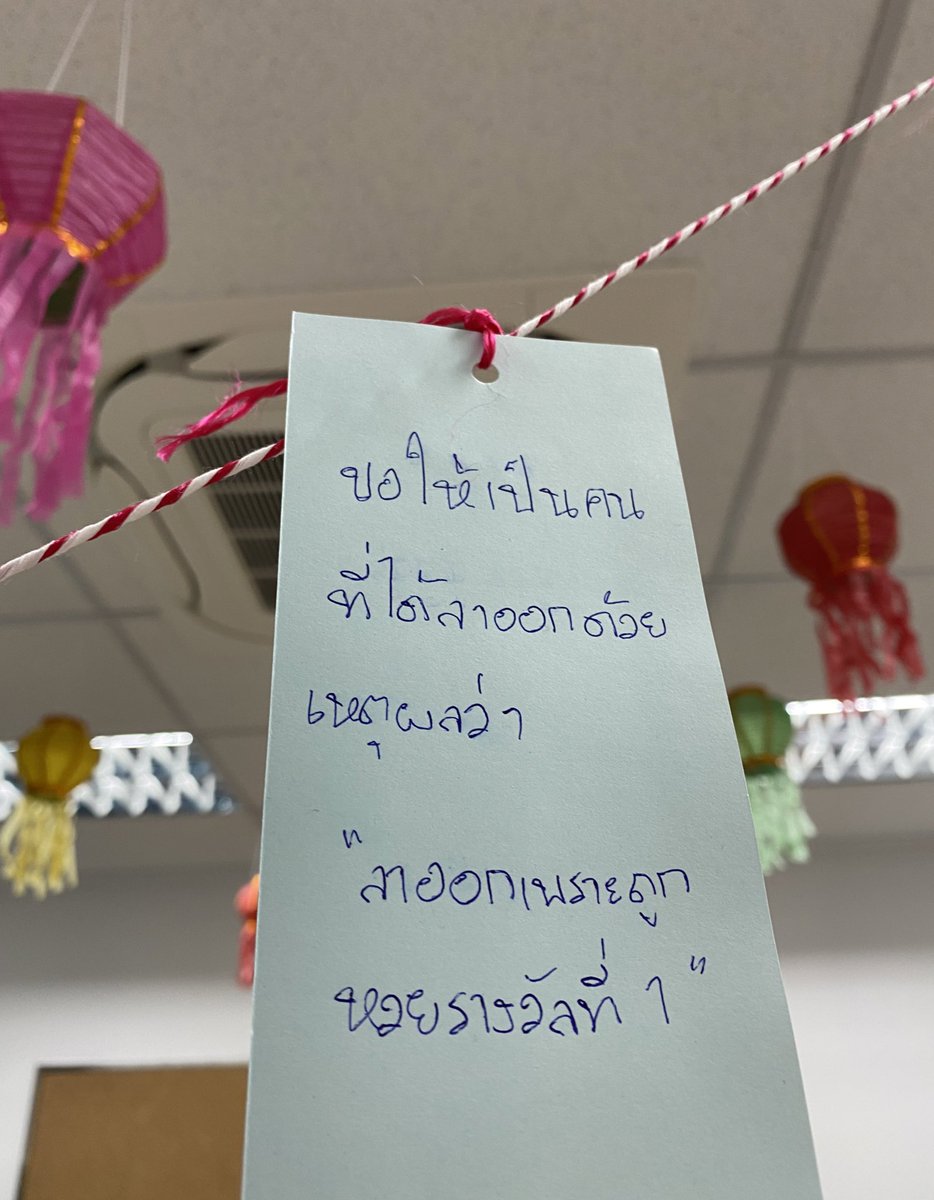 ขอให้เป็นคน
ที่ได้ลาออกด้วย
เหตุผลว่า
"ลาออกเพราะถูก
หวยรางวัลที่ 1"